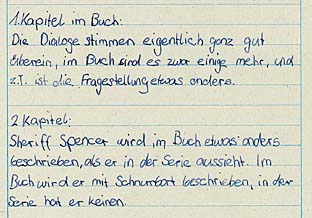 1. Kapitel im Buch:
Die Dialoge stimmen eigentlich ganz gut
überein, im Buch sind es zwar einige mehr, und
z.T. ist die Fragestellung etwas anders.
2 Kapitel:
Sheriff Spencer wird im Buch etwas anders
beschrieben, als er in der Serie aussieht. Im
Buch wird er mit Schnurrbart beschrieben, in der
Serie hat er keinen.